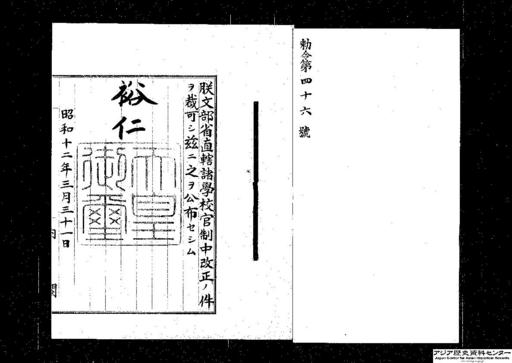 勅令第四十六號
朕文部省直轄諸學校官制中改正ノ件
ヲ裁可シ玆ニ之ヲ公布セシム
裕仁
天皇
御璽
昭和十二年三月三十一日
内閣
アジア歴史資料センター
Japan Center for Asian Historical Records